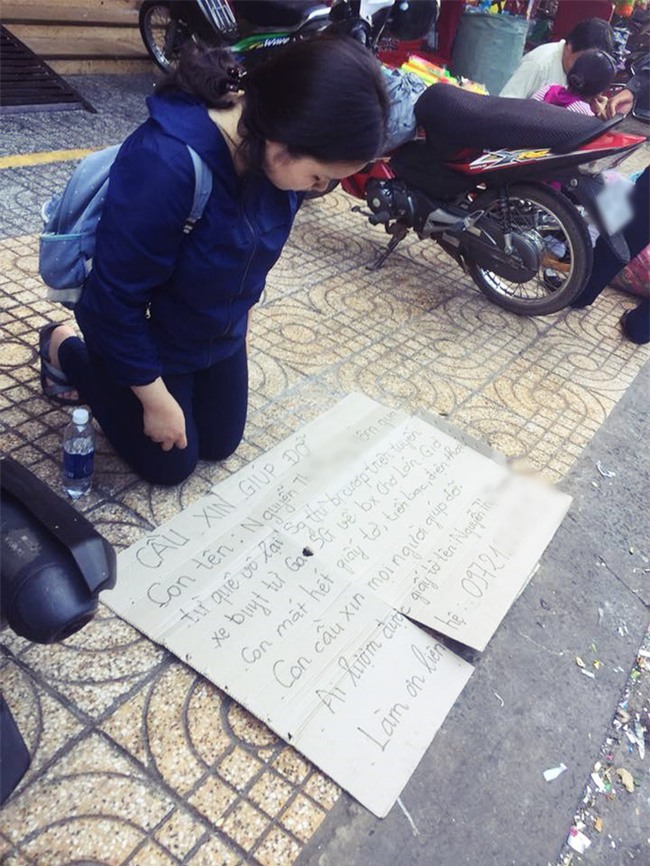 CẦU XIN GIÚP ĐỠ
Con tên: Nguyễn T
từ quê vô lại SG thì bị cướp trên tuyến
xe buýt từ Ga SG về bx Chợ Lớn. Giờ
con mất hết giấy tờ, tiền bạc, điện thoại
Con cầu xin mọi người giúp đỡ.
Ai lượm được giấy tờ tên: Nguyễn T
Làm ơn liên hệ: 09721
Wave